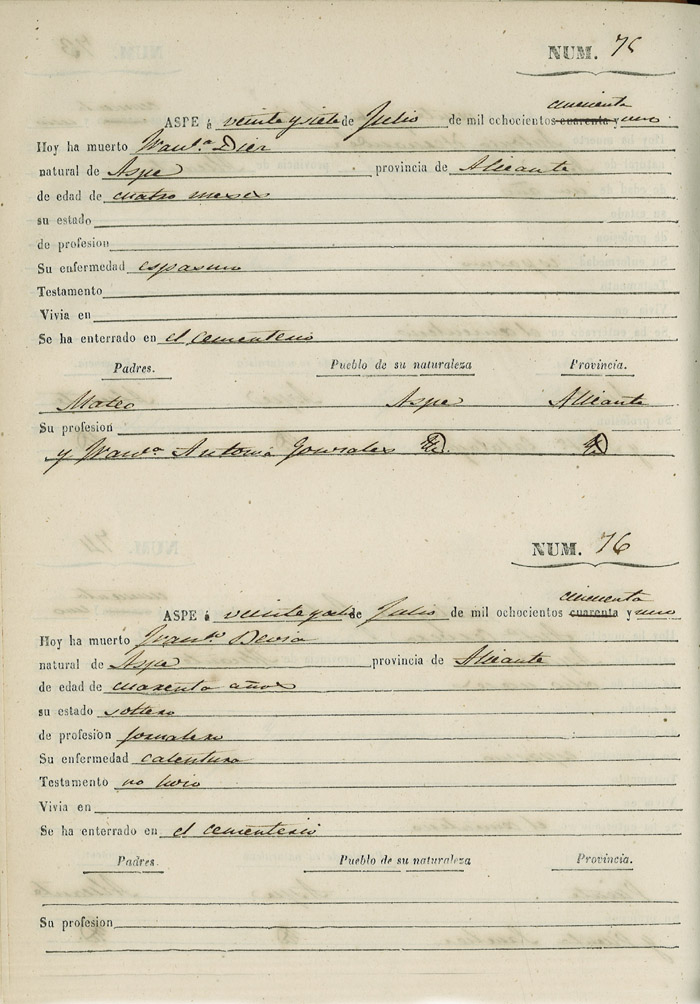 NUM. 75
cincuenta
ASPE á veinte y siete de Julio de mil ochocientos cuarenta y uno
Hoy ha muerto Fran.ca Dier
natural de Aspe provincia de Alicante
de edad de cuatro meses
su estado
de profesion
Su enfermedad espasmo
Testamento
Vivia en
Se ha enterrado en el cementerio
Padres. Pueblo de su naturaleza Provincia.
Mateo Aspe Alicante
Su profesion
y Fran.ca Antonia Gonzales
NUM. 76
cincuenta
ASPE á veinte y ocho de Julio de mil ochocientos cuarenta y uno
Hoy ha muerto Fran.co
natural de Aspe provincia de Alicante
de edad de cuarenta años
su estado soltero
de profesion jornalero
Su enfermedad calentura
Testamento no hizo
Vivia en
Se ha enterrado en el cementerio
Padres. Pueblo de su naturaleza Provincia.
Su profesion